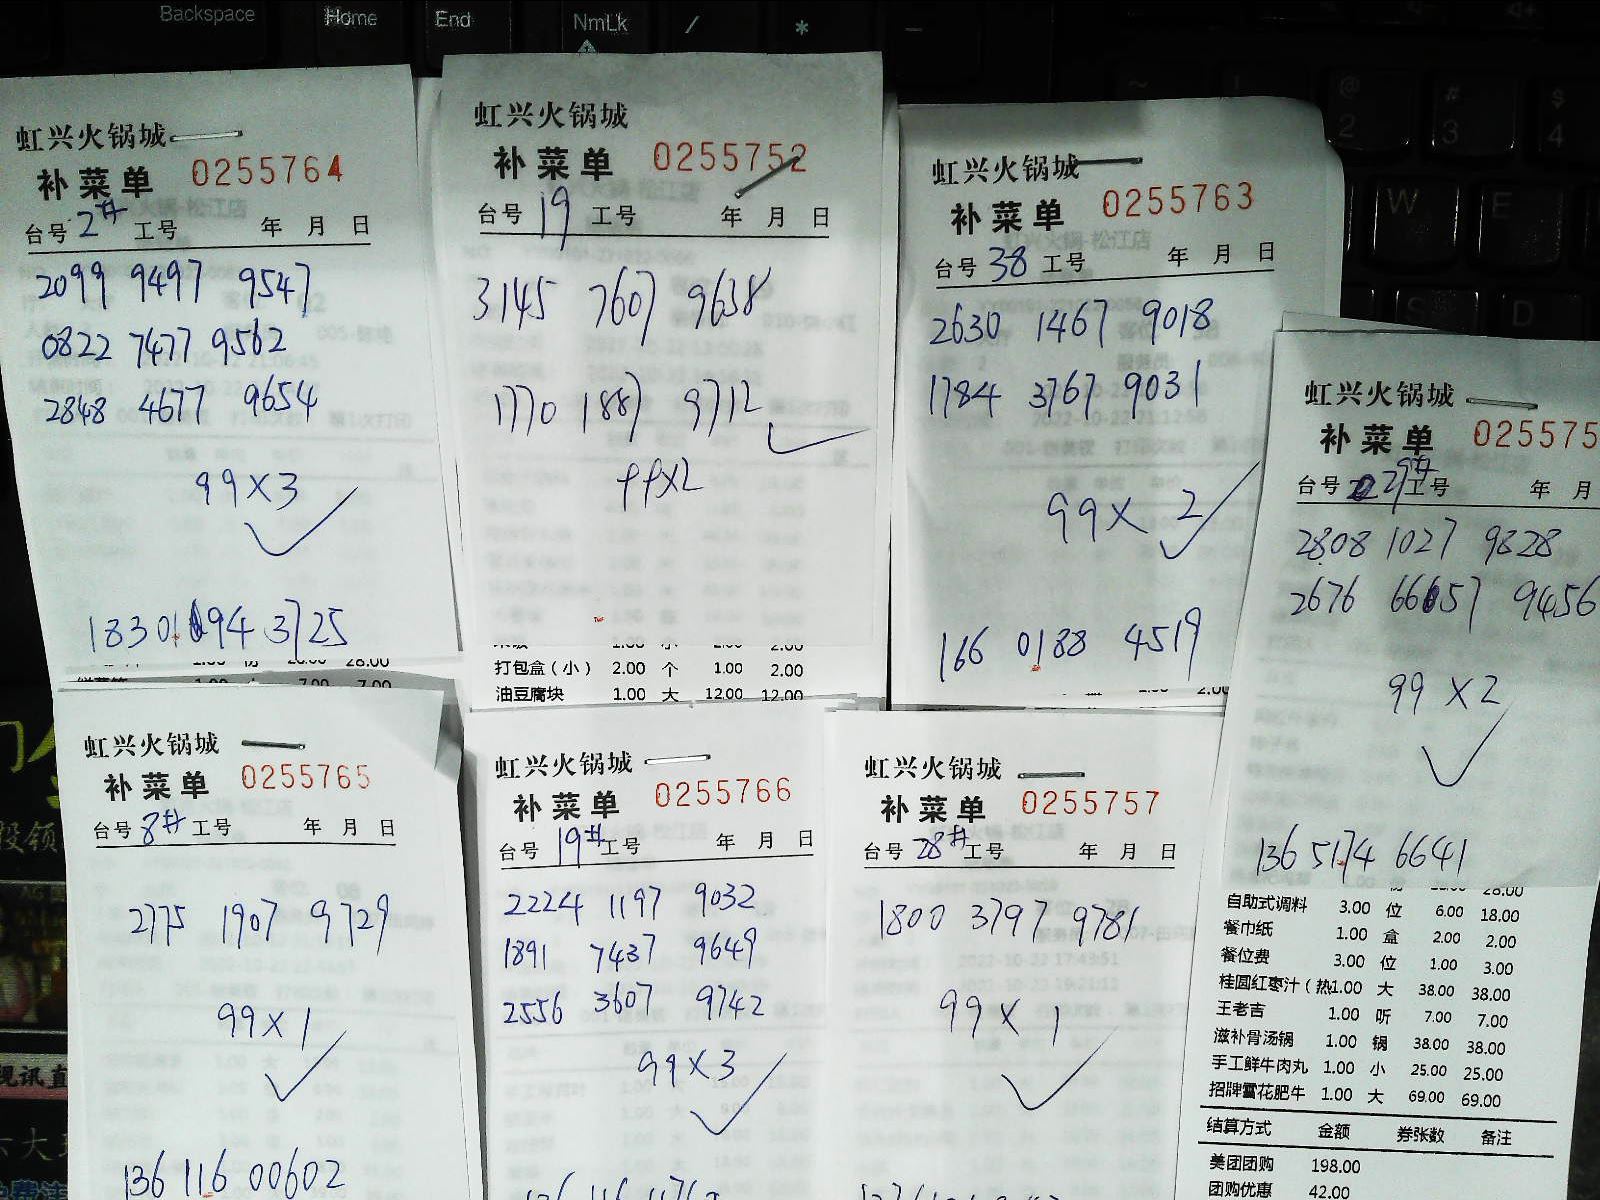 Backspace
Home
End
NmLk
/
*
虹兴火锅城
补菜单 0255764
台号 2# 工号 年 月 日
2099 9497 9547
0822 7477 9562
2848 4677 9654
99×3
虹兴火锅城
补菜单 0255752
台号 19 工号 年 月 日
3145 7607 9638
1770 1887 9712
99×2
打包盒（小） 2.00 个 1.00 2.00
油豆腐块 1.00 大 12.00 12.00
虹兴火锅城
补菜单 0255763
台号 38 工号 年 月 日
2630 1467 9018
1784 3767 9031
99×2
166 0188 4519
虹兴火锅城
补菜单 025575
台号 29# 工号 年 月
2808 1027 9828
2676 6657 9456
99×2
136 5174 6641
自助式调料 3.00 位 6.00 18.00
餐巾纸 1.00 盒 2.00 2.00
餐位费 3.00 位 1.00 3.00
桂圆红枣汁（热 1.00 大 38.00 38.00
王老吉 1.00 听 7.00 7.00
滋补骨汤锅 1.00 锅 38.00 38.00
手工鲜牛肉丸 1.00 小 25.00 25.00
招牌雪花肥牛 1.00 大 69.00 69.00
结算方式 金额 券张数 备注
美团团购 198.00
团购优惠 42.00
虹兴火锅城
补菜单 0255765
台号 8# 工号 年 月 日
2775 1907 9729
99×1
136 116 00602
虹兴火锅城
补菜单 0255766
台号 19# 工号 年 月 日
2224 1197 9032
1891 7437 9649
2556 3607 9742
99×3
虹兴火锅城
补菜单 0255757
台号 28# 工号 年 月 日
1800 3797 9781
99×1